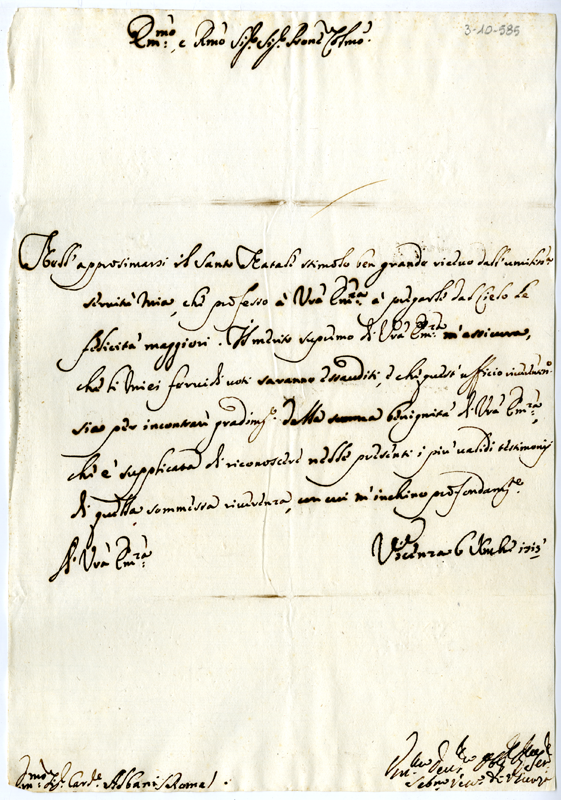 3-10-585
Em:mo e Rmo Sig.r Sig.r Pron Colmo.
Nell'approsimarsi il Santo Natale stimolo ben grande ricevo dall'umiliss.a
servitù mia, che professo à Vrà Em:za à pregarle dal Cielo le
felicità maggiori. Il merito supremo di Vrà Em:za m'assicura,
che li miei fervidi voti saranno essauditi, e che quest'ufficio
sia per incontrar gradim.to dalla somma benignità di Vrà Em:za,
che è supplicata di riconoscere nelle presenti i più validi testimonij
di quella sommessa riverenza, con cui m'inchino profondam.te
Di Vrà Em:za
Vicenza 6 Xmbre 1713
Em:mo Sig.r Card.e Albani Roma